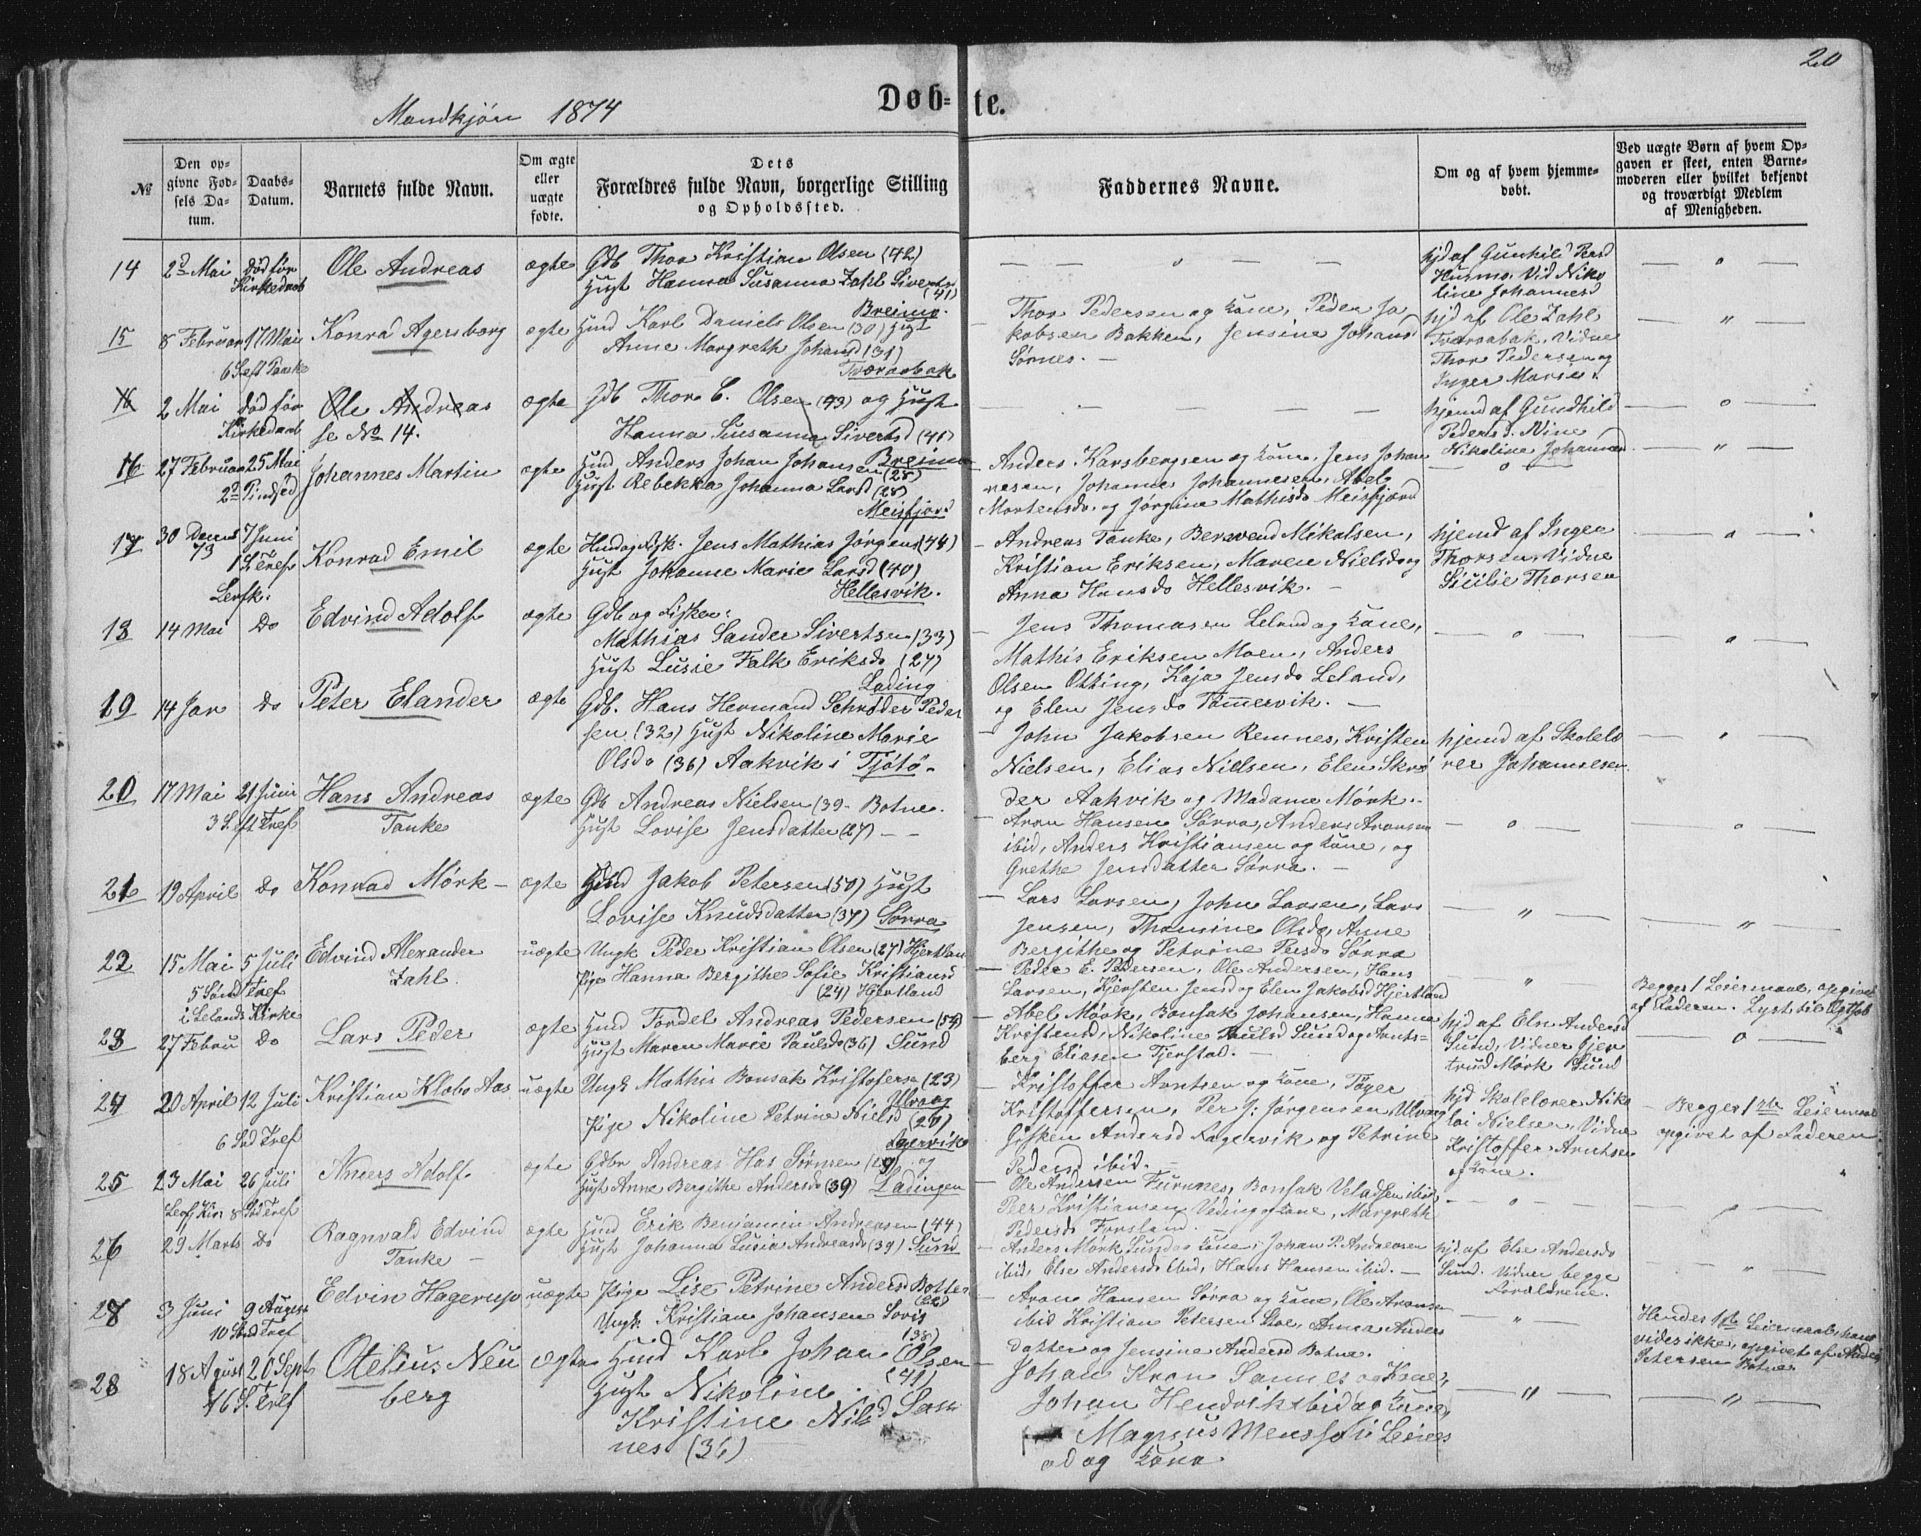 20
Mandkjøn 1874
Døb- te.
№
Den op-
givne Fød-
sels Da-
tum.
Daabs-
Datum.
Barnets fulde Navn.
Om ægte
eller
uægte
fødte.
Dets
Forældres fulde Navn, borgerlige Stilling
og Opholdssted.
Faddernes Navne.
Om og af hvem hjemme-
døbt.
Ved uægte Børn af hvem Op-
gaven er skeet, enten Barne-
moderen eller hvilket bekjendt
og troværdigt Medlem
af Menigheden.
14 2 Mai død før Kirkedaab
Ole Andreas
ægte
Gdb Thor Kristian Olsen (42)
Hust Hanna Susanna Zahl Sivertsd (41)
Breimo.
— — " — —
hjd af Gunhild Persd
Husmo. Vid Niko
line Johannesd
— " —
15 8 Februar 17 Mai
6 Søft Paaske
Konrad Agersborg
ægte
Hmd Karl Daniels Olsen (30) Hust
Anne Margreth Johansd (31)
Tværaabak
Thor Pedersen og Kone, Peder Ja
kobsen Bakken, Jensine Johansd
Sørnes. —
hjd af Ole Zahl
Tværaabak, Vidne
Thor Pedersen og
Inger Marie.
— " —
16 2 Mai død før Kirkedaab
Ole Andreas
se No 14.
ægte
Gdb Thor C. Olsen (43) og Hust
Hanna Susanna Sivertsd (41)
Breimo
— — — — —
hjemd af Gundhild
Pedersd. Vine
Nikoline Johannesd
— " —
16 27 Februar 25 Mai
2 Pindsed
Johannes Martin
ægte
Hmd Anders Johan Johansen (28)
Hust Rebekka Johanna Larsd (28)
Meisfjord
Anders Karsbergsen og Kone, Jens Johan
nesen, Johannes Johannesen, Abel
Mortensdo. og Jørgine Mathisdo Meisfjord
— " —
— " —
17 30 Decemb 73 7 Juni
1 S. Tref
Leifk.
Konrad Emil
ægte
Hmd og Fisk. Jens Mathias Jørgens (44)
Hust Johanne Marie Larsd (40)
Hellesvik.
Andreas Tanke, Berwend Mikalsen,
Kristian Eriksen, Maren Nielsdo og
Anna Hansdo Hellesvik. —
hjemd af Inger
Thorsen, Vidne
Sicilie Thorsen
— " —
18 14 Mai Do
Edvind Adolf
ægte
Gdb og Fisker
Mathias Sander Sivertsen (33)
Hust Lusie Falk Eriksdo (27)
Lading
Jens Thomasen Leland og Kone,
Mathis Eriksen Moen, Anders
Olsen Otting, Kaja Jensdo Leland,
og Elen Jensdo Tømmervik. —
— " —
— " —
19 14 Jan Do
Peter Elander
ægte
Gdb. Hans Hermand Schrøder Peder
sen (32) Hust Nikoline Marie
Olsdo (36) Aakvik i Tjøtø.
John Jakobsen Remnes, Kristen
Nielsen, Elias Nielsen, Elen Skrø
der Aakvik og Madame Mørk.
hjemd af Skolelæ
rer Johannesen.
— " —
20 17 Mai 21 Juni
3 S. eft Tref
Hans Andreas
Tanke
ægte
Gdb Andreas Nielsen (39 - Botne.
Hust Lovise Jensdatter (27) — —
Aron Hansen Sørra, Anders Aronsen
ibid, Anders Kristiansen og Kone, og
Grethe Jensdatter Sørra. —
— " —
— " —
21 19 April Do
Konrad Mørk —
ægte
Hmd Jakob Petersen (50) Hust
Lovise Knudsdatter (37) Sørra
Lars Larsen, John Larsen, Lars
Jensen, Thomine Olsdo, Anne
Bergithe og Petrine Persdo Sørra
— " —
— " —
22 15 Mai 5 Juli
5 Sønd Tref
i Lelands Kirke
Edvind Alexander
Zahl.
uægte
Ungk Peder Kristian Olsen (27) Hjertlan
Pige Hanna Bergithe Sofie Kristiansd
(24) Hjertland
Peder E. Pedersen, Ole Andersen, Hans
Larsen, Kirsten Jensd og Elen Jakobsd Hjertland
— " —
Begges 1 Leiermaal, opgivet
af Faderen.
23 27 Febru Do
Lars Peder
ægte
Hmd Fordel Andreas Pedersen (54)
Hust Maren Marie Paulsdo (36) Sund
Abel Mørk, Bonsak Johansen, Hanna
Kristensd, Nikoline Paulsd Sund og Arnts-
berg Eliasen Tjerstad. —
hjd af Eln Andersd
Sund, Vidner Gjer
trud Mørk Sund
— " —
24 20 April 12 Juli
6 Sød Tref
Kristian Klabo Aas
uægte
Ungk Mathis Bonsak Kristofersen (23)
Ulvang
Pige Nikoline Petrine Nielsd (26)
Fagervik
Kristoffer Arntsen og Kone, Töger
Kristoffersen, Per J. Jørgensen Ulvang
Gisken Andersd Fagervik og Petrine
Pedersd ibid. —
hjd Skolelærer Niko
lai Nielsen, Vidne
Kristoffer Arntsen
og Kone.
Begges 1ste Leiermaal
opgivet af Faderen
25 23 Mai 26 Juli
Leif Kir. 8 Sød Tref
Anders Adolf
ægte
Gdbr Andreas Has Sørmen (29) og
Hust Anne Bergithe Andersdo (39) Ladingen
Ole Andersen Furunes, Bonsak Veladsen ibid,
Peer Kristiansen Veding og Kone, Margreth
Pedersdo Forsland. —
— " —
— " —
26 29 Marts Do
Ragnvald Edvind
Tanke —
ægte
Hmd Erik Benjamin Andreasen (44)
Hust Johanna Lusia Andreasdo (39) Sund
Anders Mørk Sund og Kone, Johan P. Andreasen
ibid, Else Andersdo ibid, Hans Hansen ibid. —
hjd. af Else Andersdo
Sund. Vidner begge
Forældrene.
— " —
27 3 Juni 9 August
10 Sød Tref
Edvin Hagerup
uægte
Pige Lise Petrine Andersd Botne
Ungk Kristian Johansen Sovig
Aron Hansen Sørra og Kone, Ole Aronsen
ibid Kristian Petersen Skoe, Anna Anders
datter og Jensine Andersd Botne.
— " —
Hendes 1ste Leiermaal, hans
vides ikke, opgivet af
Petersen Botne
28 18 Agust 20 Sept
16 S. Tref
Otelius Neu
berg
ægte
Hmd Karl Johan Olsen (38)
(41)
Hust Nikoline
Kristine Nilsd San
nes (36)
Johan Kron Sannes og Kone,
Johan Hendrik ibid og Kone,
Magnus Monssen i Leines
od og Kone
— " —
— " —